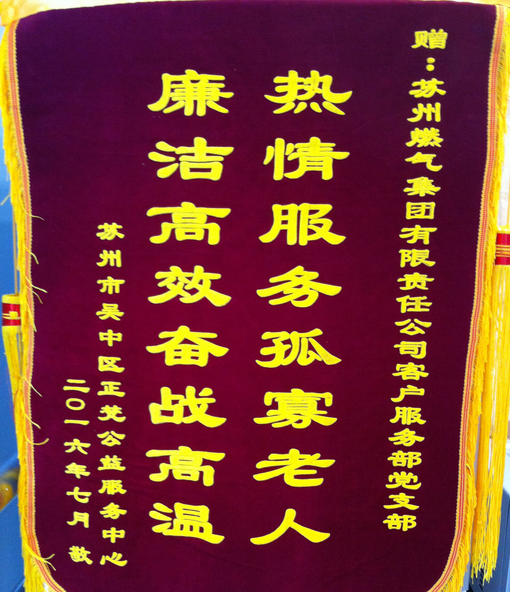 赠：苏州燃气集团有限责任公司客户服务部党支部
热情服务孤寡老人
廉洁高效奋战高温
苏州市吴中区正芡公益服务中心
二〇一六年七月 敬